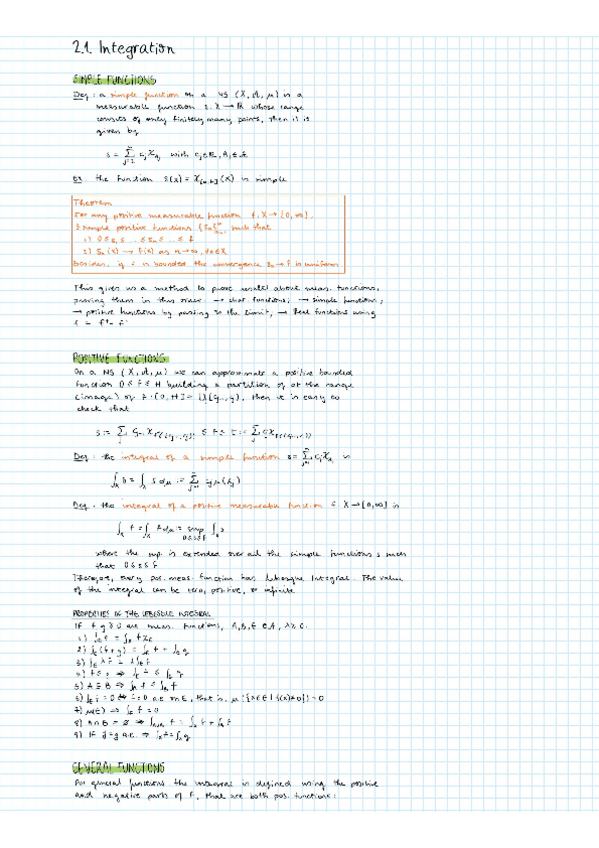 2.1. Integration
SIMPLE FUNCTIONS
Def: a simple function on a MS (X, A, μ) is a
measurable function s: X → ℝ whose range
consists of only finitely many points, then it is
given by
s = Σ cⱼ χ_Aⱼ with cⱼ ∈ ℝ, Aⱼ ∈ A
Ex: the function s(x) = χ[a,b](x) is simple
Theorem
For any positive measurable function f: X → [0, ∞],
∃ simple positive functions {sₙ} such that
1) 0 ≤ s₁ ≤ ... ≤ sₙ ≤ ... ≤ f
2) sₙ(x) → f(x) as n → ∞, ∀x ∈ X
Besides, if f is bounded the convergence sₙ → f is uniform
This gives us a method to prove results about meas. functions,
proving them in this order: → char. functions, → simple functions,
→ positive functions by passing to the limit, → Real functions using
f = f⁺ - f⁻
POSITIVE FUNCTIONS
On a MS (X, A, μ) we can approximate a positive bounded
function 0 ≤ f ≤ M building a partition of the range
(image) of f: [0, M] =, then it is easy to
check that
≤ f ≤
Def: the integral of a simple function s = Σ cⱼ χ_Aⱼ is
∫ s = ∫ s dμ := Σ cⱼ μ(Aⱼ)
Def: the integral of a positive measurable function f: X → [0, ∞] is
∫ f = ∫ f dμ := sup ∫ s
0 ≤ s ≤ f
where the sup is extended over all the simple functions s such
that 0 ≤ s ≤ f
Therefore, every pos. meas. function has Lebesgue Integral. The value
of the integral can be zero, positive, or infinite
PROPERTIES OF THE LEBESGUE INTEGRAL
If f, g ≥ 0 are meas. functions, A, B, E ∈ A, λ ≥ 0:
1) ∫_E f = ∫_X f χ_E
2) ∫_E (f + g) = ∫_E f + ∫_E g
3) ∫_E λf = λ ∫_E f
4) f ≤ g ⇒ ∫_E f ≤ ∫_E g
5) A ⊆ B ⇒ ∫_A f ≤ ∫_B f
6) ∫_E f = 0 ⇔ f = 0 a.e. on E, that is, μ({x ∈ E | f(x) ≠ 0}) = 0
7) ⇒ ∫_E f = 0
8) A ∩ B = ∅ ⇒ ∫_A∪B f = ∫_A f + ∫_B f
9) If f = g a.e. ⇒ ∫_E f = ∫_E g
GENERAL FUNCTIONS
For general functions the integral is defined using the positive
and negative parts of f, that are both pos. functions: